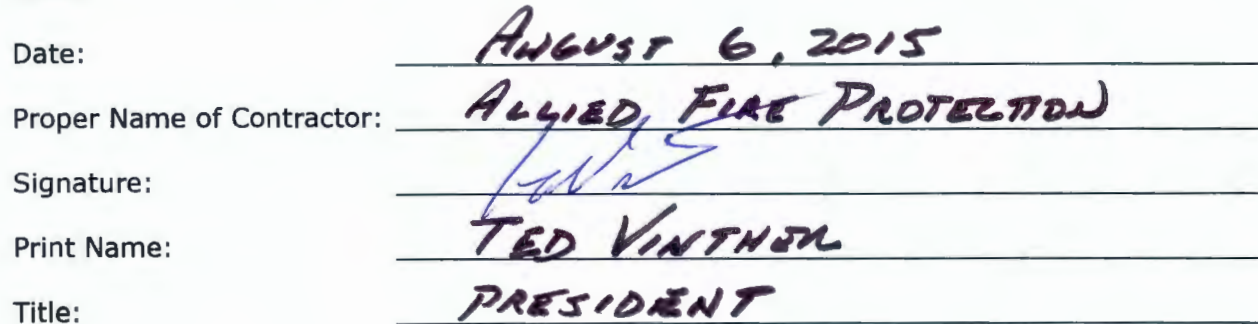 Date: August 6, 2015
Proper Name of Contractor: Allied Fire Protection
Signature:
Print Name: Ted Vinther
Title: President